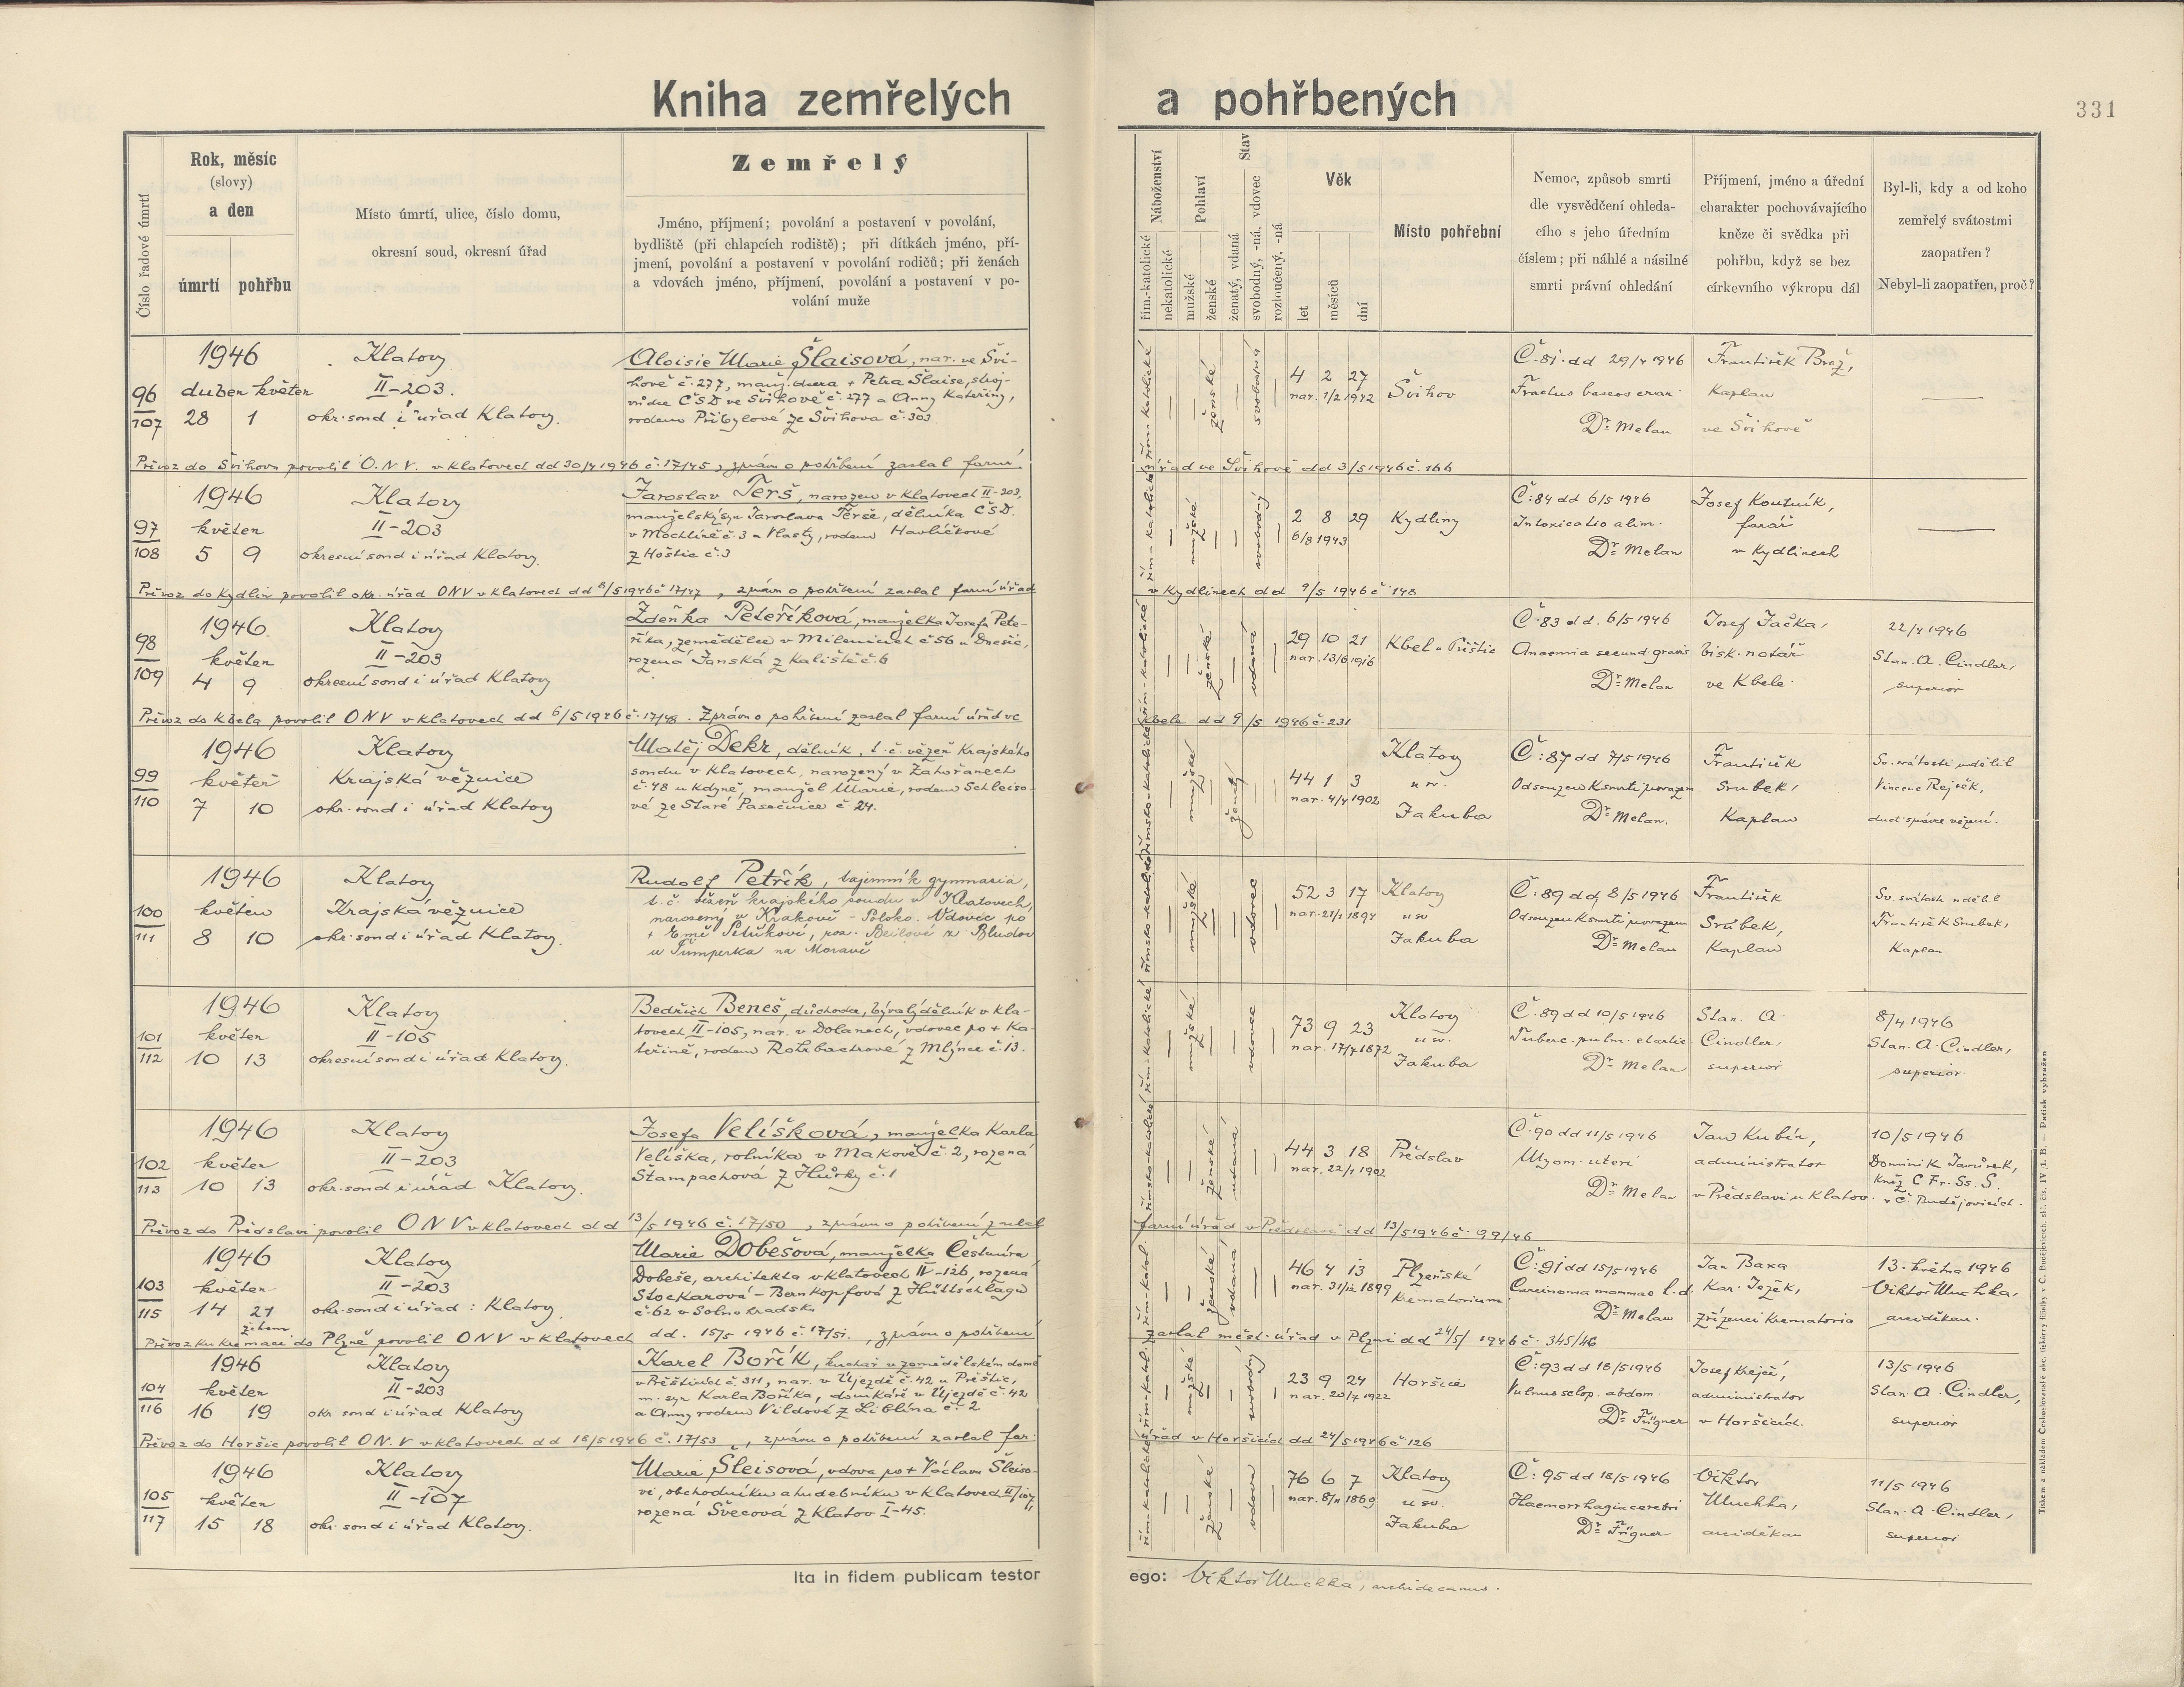 Kniha zemřelých a pohřbených
331
Číslo řadové úmrtí
Rok, měsíc
(slovy)
a den
úmrtí pohřbu
Místo úmrtí, ulice, číslo domu,
okresní soud, okresní úřad
Zemřelý
Jméno, příjmení; povolání a postavení v povolání,
bydliště (při chlapcích rodiště); při dítkách jméno, pří-
jmení, povolání a postavení v povolání rodičů; při ženách
a vdovách jméno, příjmení, povolání a postavení v po-
volání muže
Náboženství
řím-katolické
nekatolické
Pohlaví
mužské
ženské
Stav
ženatý, vdaná
svobodný, -ná, vdovec
rozloučený, -ná
Věk
let
měsíců
dní
Místo pohřební
Nemoc, způsob smrti
dle vysvědčení ohleda-
cího s jeho úředním
číslem; při náhlé a násilné
smrti právní ohledání
Příjmení, jméno a úřední
charakter pochovávajícího
kněze či svědka při
pohřbu, když se bez
církevního výkropu dál
Byl-li, kdy a od koho
zemřelý svátostmi
zaopatřen?
Nebyl-li zaopatřen, proč?
96
107
1946
duben květen
28 1
Klatovy
II-203.
okr. soud i úřad Klatovy.
Aloisie Marie Šlaisová, nar. ve Švi-
hově č. 277, manž. dcera + Petra Šlaise, stroj-
vůdce ČSD ve Švihově č. 277 a Anny Kateřiny,
rodem Přibylové ze Švihova č. 303
řím-katolické
ženské
svobodná
4 2 27
nar. 1/2 1942
Švihov
Č. 81 dd 29/4 1946
Fractus baseos
Dr Melan
František Brož,
kaplan
ve Švihově
Převoz do Švihova povolil O.N.V. v Klatovech dd 30/4 1946 č. 17/45, zprávu o pohřbení zaslal farní
úřad ve Švihově dd 3/5 1946 č. 166
97
108
1946
květen
5 9
Klatovy
II-203
okresní soud i úřad Klatovy.
Jaroslav Terš, narozen v Klatovech II-203,
manželský syn Jaroslava Terše, dělníka ČSD.
v Mochtíně č. 3 a Vlasty, rodem Havlíčkové
z Hoštic č. 3
řím-katolické
mužské
svobodný
2 8 29
6/8 1943
Kydliny
Č: 84 dd 6/5 1946
Intoxicatio alim.
Dr Melan
Josef Koutník,
farář
v Kydlinech
Převoz do Kydlin povolil okr. úřad ONV v Klatovech dd 8/5 1946 č 17/47, zprávu o pohřbení zaslal farní úřad
v Kydlinech dd 9/5 1946 č 148
98
109
1946
květen
4 9
Klatovy
II-203
okresní soud i úřad Klatovy
Zdeňka Peteříková, manželka Josefa Pete-
říka, zemědělce v Milenicích č 56 u Dnešic,
rozená Janská z Kaliště č. 6
řím-katolické
ženské
vdaná
29 10 21
nar. 13/6 1916
Kbel u Přeštic
Č. 83 dd. 6/5 1946
Anaemia secund. gravis
Dr Melan
Josef Jačka,
bisk. notář
ve Kbele.
22/4 1946
Stan. A. Cindler,
superior
Převoz do Kbela povolil ONV v Klatovech dd 6/5 1946 č. 17/48. Zprávu o pohřbení zaslal farní úřad ve
Kbele dd 9/5 1946 č. 231
99
110
1946
květen
7 10
Klatovy
Krajská věznice
okr. soud i úřad Klatovy
Matěj Dekr, dělník, t. č. vězeň Krajského
soudu v Klatovech, narozený v Zahořanech
č. 48 u Kdyně, manžel Marie, rodem Schleiso-
vé ze Staré Pasečnice č 24.
římsko-katolické
mužské
ženatý
44 1 3
nar. 4/4 1902
Klatovy
u sv.
Jakuba
Č: 87 dd 7/5 1946
Odsouzen k smrti provazem
Dr Melan.
František
Srubek,
Kaplan
Sv. svátosti udělil
Vincenc Rejšek,
duch. správce vězení.
100
111
1946
květen
8 10
Klatovy
Krajská věznice
okr. soud i úřad Klatovy.
Rudolf Petřík, tajemník gymnasia,
t. č. vězeň krajského soudu v Klatovech,
narozený v Krakově - Polsko. Vdovec po
+ Emě Petříkové, roz. Beilové z Bludov
u Šumperka na Moravě
římsko-katolické
mužské
vdovec
52 3 17
nar. 21/1 1894
Klatovy
u sv
Jakuba
Č: 89 dd 8/5 1946
Odsouzen k smrti provazem
Dr Melan
František
Srubek,
Kaplan
Sv. svátosti udělil
František Srubek,
Kaplan
101
112
1946
květen
10 13
Klatovy
II-105
okresní soud i úřad Klatovy.
Bedřich Beneš, důchodce, bývalý dělník v Kla-
tovech II-105, nar. v Dolanech, vdovec po + Ka-
teřině, rodem Rohrbachrové z Mlýnce č. 13.
řím-katolické
mužské
vdovec
73 9 23
nar. 17/7 1872
Klatovy
u sv.
Jakuba
Č. 89 dd 10/5 1946
Tuberc. pulm.
Dr Melan
Stan. A.
Cindler,
superior
8/4 1946
Stan. A. Cindler,
superior.
102
113
1946
květen
10 13
Klatovy
II-203
okr. soud i úřad Klatovy.
Josefa Velíšková, manželka Karla
Velíška, rolníka v Makově č. 2, rozená
Štampachová z Hůrky č. 1
římsko-katolické
ženské
vdaná
44 3 18
nar. 22/1 1902
Předslav
Č. 90 dd 11/5 1946
Myom. uteri
Dr Melan
Jan Kubín,
administrator
v Předslavi u Klatov.
10/5 1946
Dominik Javůrek,
Kněz C Fr. Ss. S.
v Č. Budějovicích.
Převoz do Předslavi povolil ONV v Klatovech dd 13/5 1946 č. 17/50, zprávu o pohřbení zaslal
farní úřad v Předslavi dd 13/5 1946 č. 99/46
103
115
1946
květen
14 24
žehem
Klatovy
II-203
okr. soud i úřad: Klatovy.
Marie Dobešová, manželka Čestmíra
Dobeše, architekta v Klatovech IV-126, rozená
Stockarová - Bernkopfová z Hüttschlagu
č. 62 v Solnohradsku
řím-katol.
ženské
vdaná
46 4 13
nar. 31/12 1899
Plzeňské
Krematorium
Č: 91 dd 15/5 1946
Carcinoma mammae l. d.
Dr Melan
Jan Baxa
Kar. Ježek,
zřízenci krematoria
13. května 1946
Viktor Muchka,
arciděkan.
Převoz ku kremaci do Plzně povolil ONV v Klatovech dd. 15/5 1946 č. 17/51., zprávu o pohřbení
zaslal měst. úřad v Plzni dd 24/5/ 1946 č. 345/46
104
116
1946
květen
16 19
Klatovy
II-203
okr. soud i úřad Klatovy
Karel Bořík, kuchař v zemědělském domě
v Přešticích č. 311, nar. v Újezdě č. 42 u Přeštic,
m. syn Karla Boříka, domkáře v Újezdě č. 42
a Anny rodem Vildové z Liblína č. 2
řím-katol.
mužské
svobodný
23 9 24
nar. 20/7 1922
Horšice
Č: 93 dd 18/5 1946
Vulnus sclop. abdom.
Dr Fügner
Josef Krejčí,
administrator
v Horšicích.
13/5 1946
Stan. A. Cindler,
superior
Převoz do Horšic povolil ON.V v Klatovech dd 18/5 1946 č. 17/53, zprávu o pohřbení zaslal far.
úřad v Horšicích dd 24/5 1946 č 126
105
117
1946
květen
15 18
Klatovy
II-107
okr. soud i úřad Klatovy.
Marie Šleisová, vdova po + Václavu Šleiso-
vi, obchodníku a hudebníku v Klatovech II/107,
rozená Švecová z Klatov I-45.
řím-katolické
ženské
vdova
76 6 7
nar. 8/11 1869
Klatovy
u sv.
Jakuba
Č: 95 dd 18/5 1946
Haemorrhagia cerebri
Dr Fügner
Viktor
Muchka,
arciděkan
11/5 1946
Stan. A. Cindler,
superior
Ita in fidem publicam testor ego: Viktor Muchka, archidecanus.
Tiskem a nákladem Českoslovanské akc. tiskárny filiálky v Č. Budějovicích, skl. čís. IV /1. B. — Patisk vyhražen